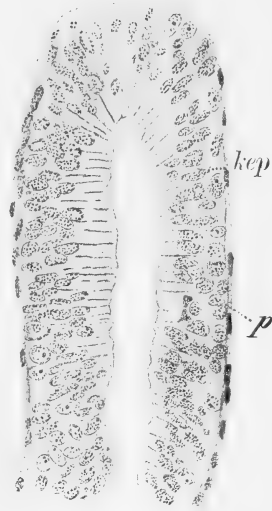 kep
p